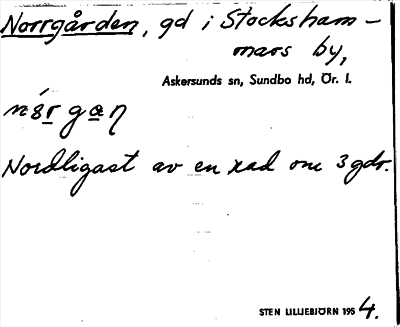 Norrgården, gd i Stocksham-
mars by,
Askersunds sn, Sundbo hd, Ör. l.
Nordligast av en rad om 3 gdr.
STEN LILLIEBJÖRN 1954.